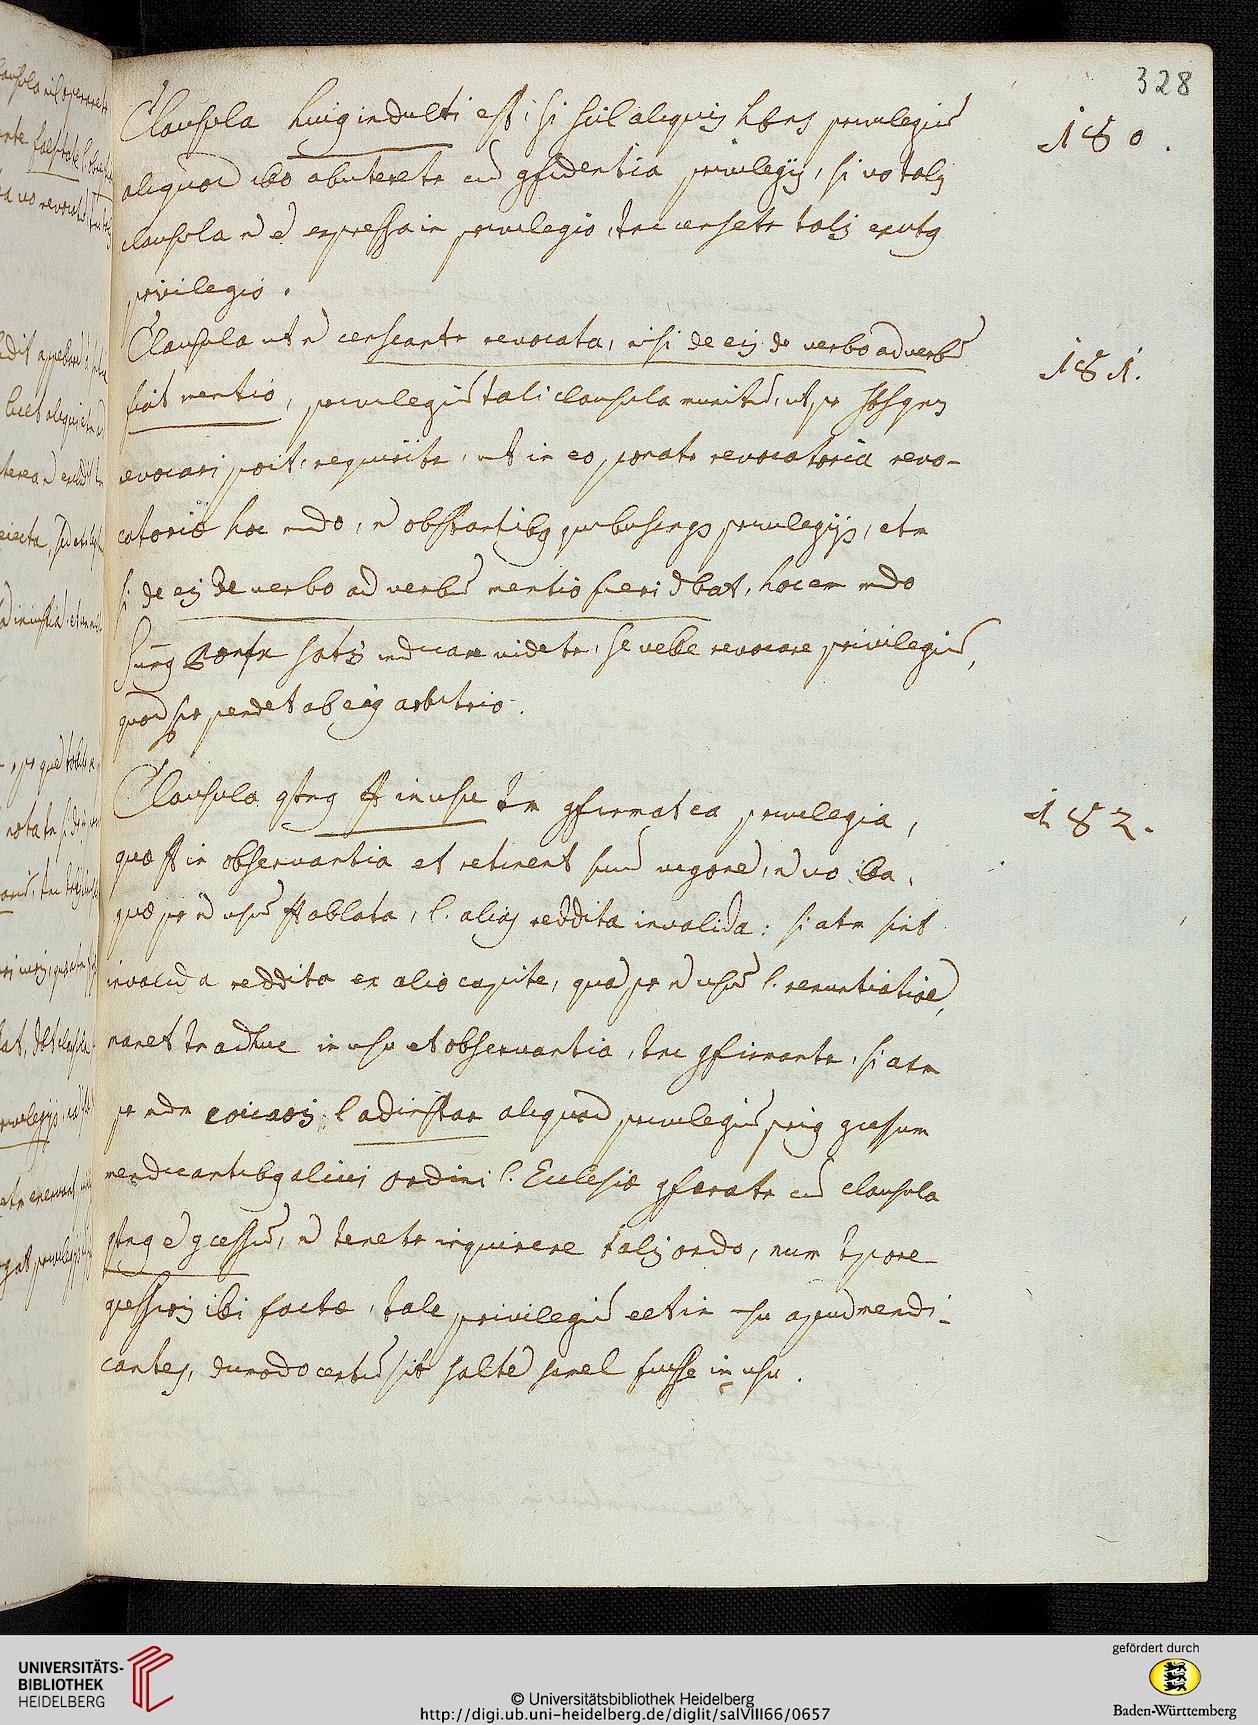 328
Clausula huius indulti est, si scil aliquis hbns privilegiu
aliquod ideo abuteretr cu gfidentia privilegij, si vo talis
clausula n e expressa in privilegio, tuc censetr talis exutus
privilegio.
180.
Clausula ut n censeantr revocata, nisi de eis de verbo ad verbu
fiat mentio, privilegiu tali clausula munitu, ut pr
revocari poit, requiritr, ut in eo ponatr revocatoria revo-
catoriæ hoc mdo, n obstantibus quibuscnqs privilegijs, etm
si de eis de verbo ad verbu mentio fieri dbat, hoc em mdo
Sumus Pontfx satis indicare videtr, se velle revocare privilegiu,
quod spr pendet ab eius arbitrio.
181.
Clausula qtnus st in usu tm gfirmat ea privilegia,
quæ st in observantia et retinent suu vigore, n vo ea,
quæ pr n usu st ablata, l. alias reddita invalida: si atm sint
invalida reddita ex alio capite, qua pr n usu l. renuntiatione,
manet tn adhuc in usu et observantia, tuc gfirmantr, si atm
pr mdm coicaois l ad instar aliquod privilegiu prius gcessum
mendicantibus alicui ordini l. Ecclesiæ gferatr cu clausula
qtnus e gcessu, n tenetr inquirere talis ordo, num tpore
gcessiois ibi factæ, tale privilegiu eet in usu apud mendi-
cantes, dumodo certu sit salte semel fuisse in usu.
182.
UNIVERSITÄTS-
BIBLIOTHEK
HEIDELBERG
© Universitätsbibliothek Heidelberg
http://digi.ub.uni-heidelberg.de/diglit/salVIII66/0657
gefördert durch
Baden-Württemberg